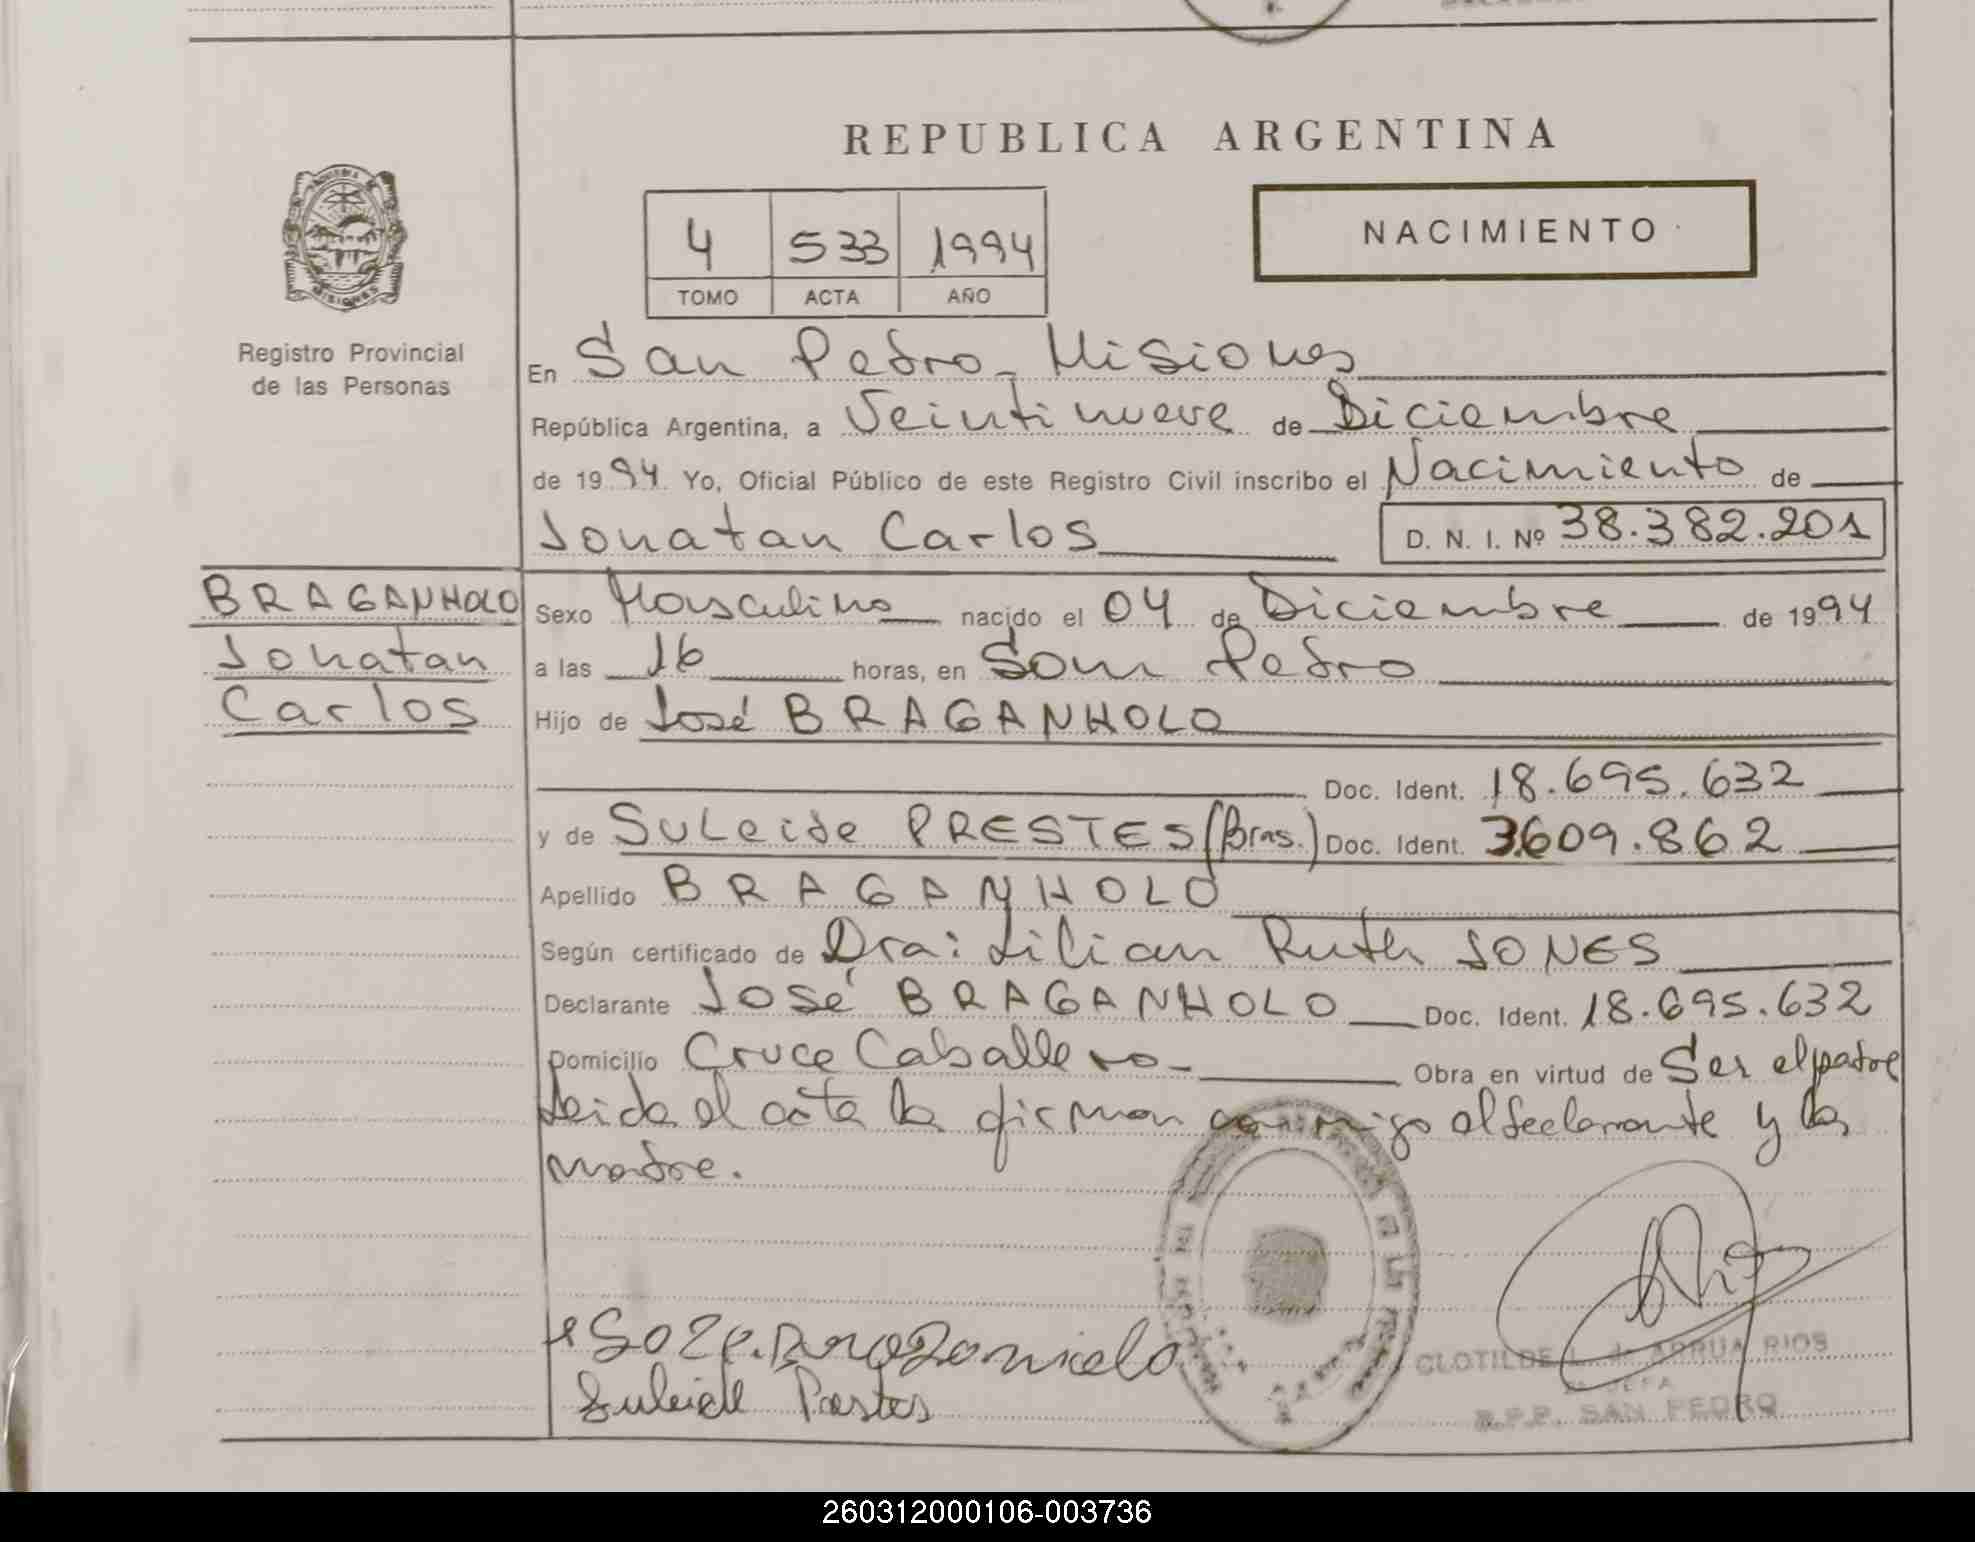 REPUBLICA ARGENTINA
4 533 1994
TOMO ACTA AÑO
NACIMIENTO
MISIONES
Registro Provincial
de las Personas
En San Pedro - Misiones
República Argentina, a Veintinueve de Diciembre
de 1994 Yo, Oficial Público de este Registro Civil inscribo el Nacimiento de
Jonatan Carlos D. N. I. Nº 38.382.201
BRAGANHOLO
Jonatan
Carlos
Sexo Masculino nacido el 04 de Diciembre de 1994
a las 16 horas, en San Pedro
Hijo de José BRAGANHOLO
Doc. Ident. 18.695.632
y de SuLeide PRESTES (Bras.) Doc. Ident. 3609.862
Apellido BRAGANHOLO
Según certificado de Dra: Lilian Ruth JONES
Declarante José BRAGANHOLO Doc. Ident. 18.695.632
Domicilio Cruce Caballero - Obra en virtud de Ser el padre
Leida el acta la firman conmigo el declarante y la
madre.
Suleide Prestes
CLOTILDE L. ARRUA RIOS
JEFA
R.P.P. SAN PEDRO
260312000106-003736